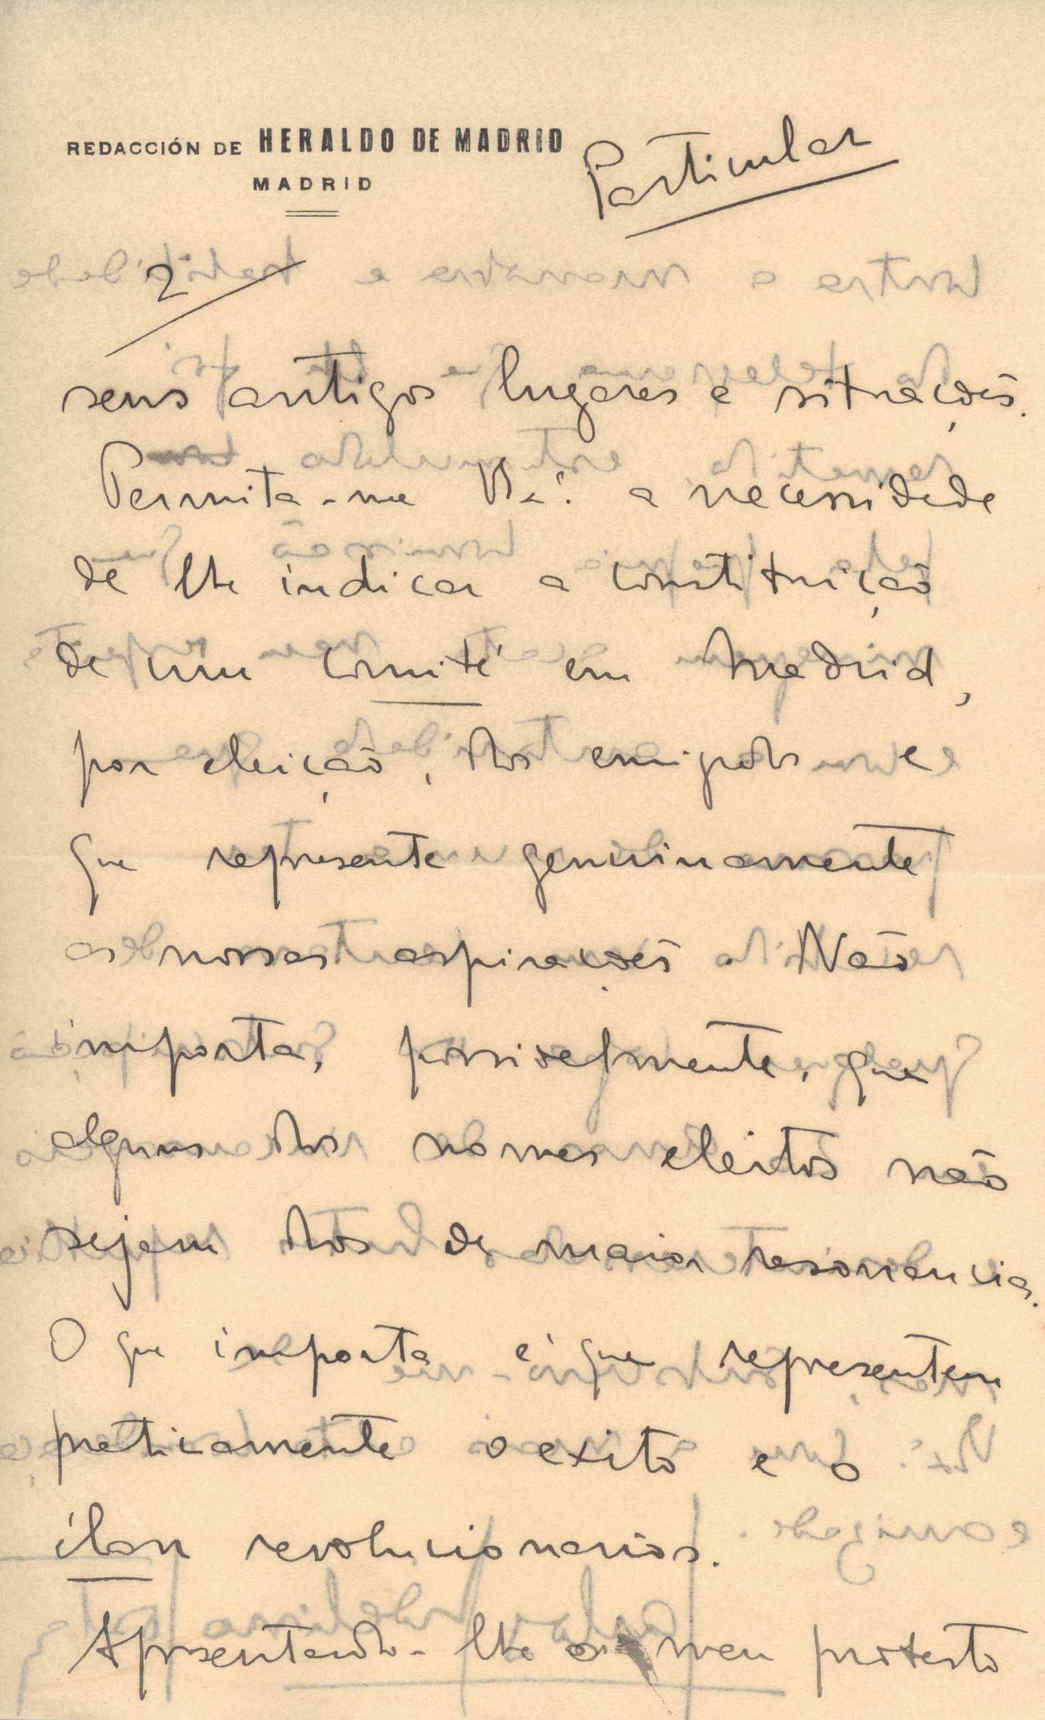 REDACCIÓN DE HERALDO DE MADRID
MADRID
Particular
2
seus antigos lugares e situações.
Permita-me V. Ex.ª a necessidade
de lhe indicar a constituição
de um comité em Madrid,
por eleição, dos emigrados e
que represente genuinamente
as nossas aspirações. Não
importa, possivelmente, que
alguns dos nomes eleitos não
sejam dos de maior resonancia.
O que importa é que representem
praticamente o exito e o
élan revolucionarios.
Apresentando-lhe o meu protesto